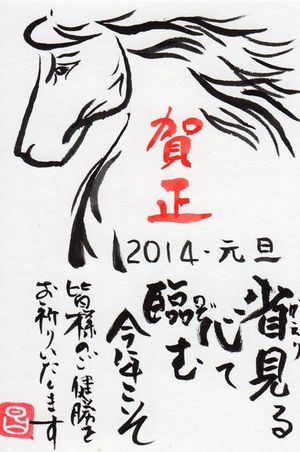 賀正
2014・元旦
省見る
かえり
心て
臨む
のぞ
今年こそ
皆様のご健勝を
お祈りいたします